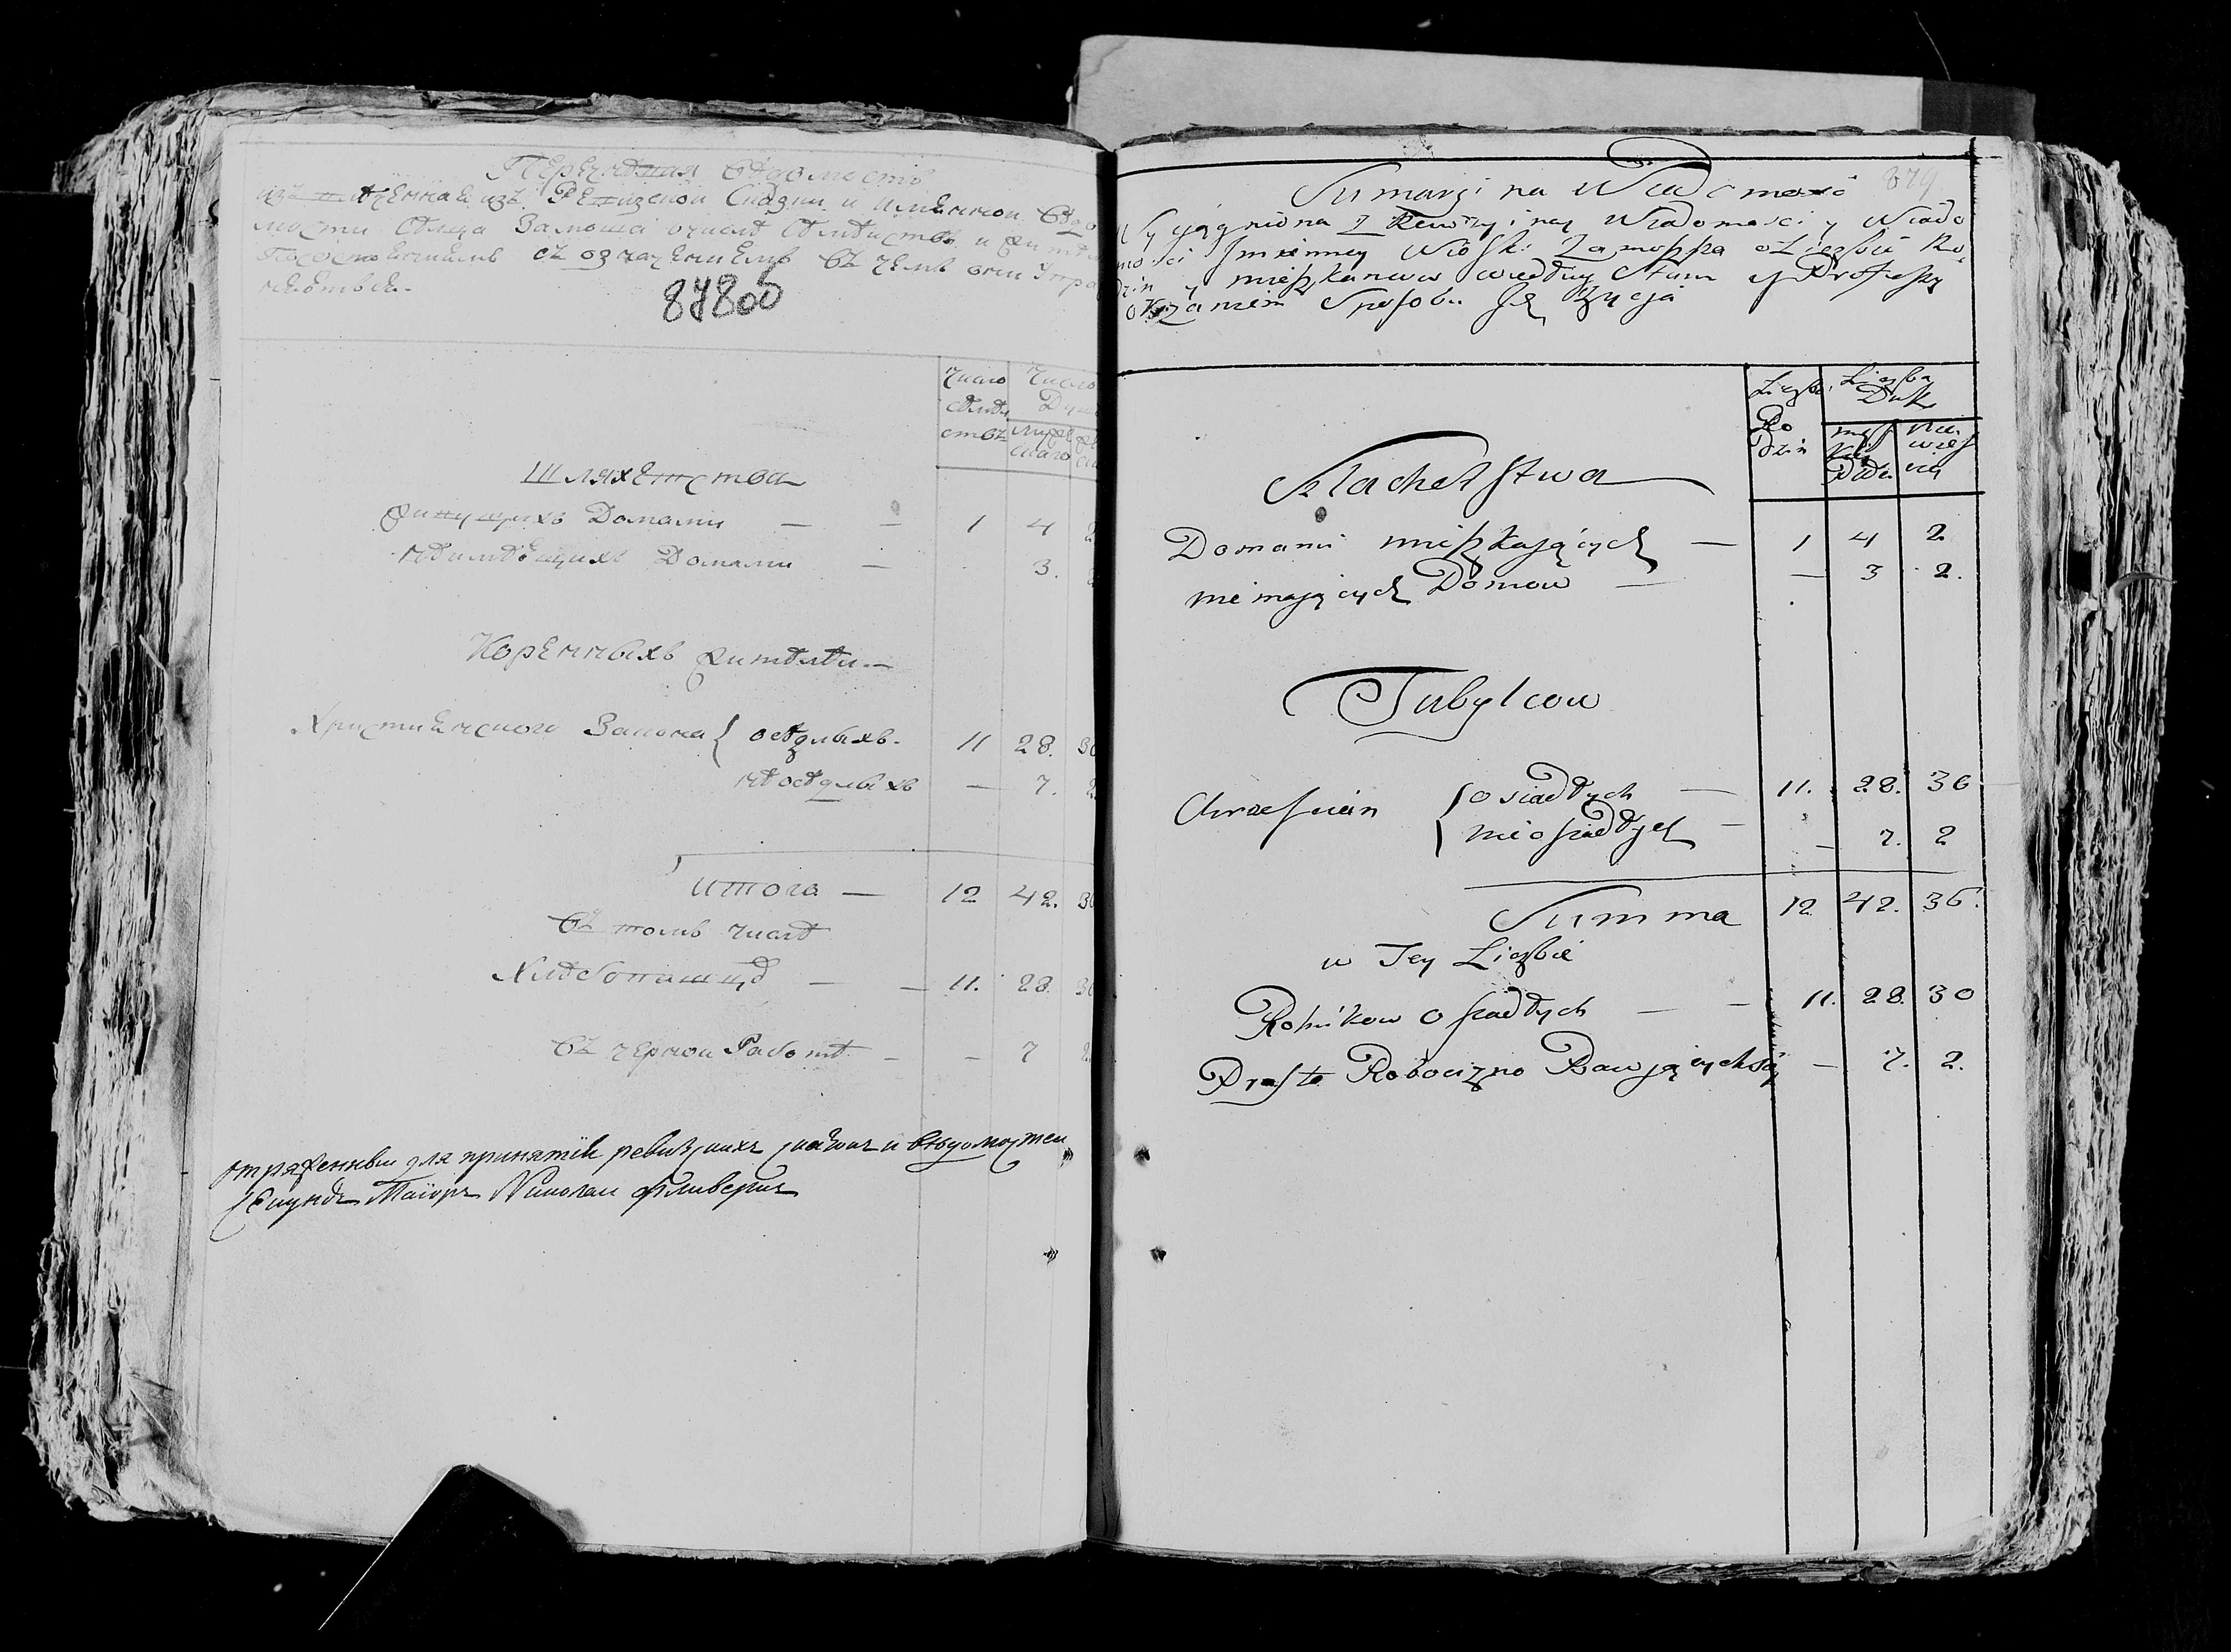 Перечневая вѣдомость
изъ Ревизской Сказки и имѣнной вѣдо
мости Селца Замоша о числѣ Семействъ и жител
съ означениемъ въ чемъ они упра
жняются.
87800
Число Семей ствъ
Число Душъ
мужескаго
Шляхетства
живущихъ Домами — — 1 4 2
неимѣющихъ Домами — 3. 2
Коренныхъ жителей. —
Християнского Закона { осѣдлыхъ. 11 28. 30
неосѣдлыхъ — 7. 2
итога — 12 42. 36
въ томъ числѣ
Хлѣбопашцѣ — — 11. 28. 30
въ черной Работѣ — — 7 2
отряженный для принятия ревизскихъ сказокъ и вѣдомостей
Секундъ Маиоръ Николай
879
Sumaryi na Wiadomość
Wyciągniona z Rewizyiney Wiadomosci y Wiado
mosci Jmienney Wioski Zamosza o Liczbie Ro
dzin y mieszkancow według Stanu y Professy
okazaniem Sposobu Jch życia
Liczba Ro dzin
Liczba Dusz
męs kiey Płci
Nie wies ciey
Szlachetstwa
Domami mieszkających — 1 4 2
nie mających Domow — — 3 2.
Tubylcow
Chrzescian { osiadłych — 11. 28. 30
{ nieosiadłych — — 7. 2
Summa 12 42. 36.
w Tey Liczbie
Rolnikow osiadłych — — 11. 28. 30
Prosto Robocizno Bawjących się — 7. 2.